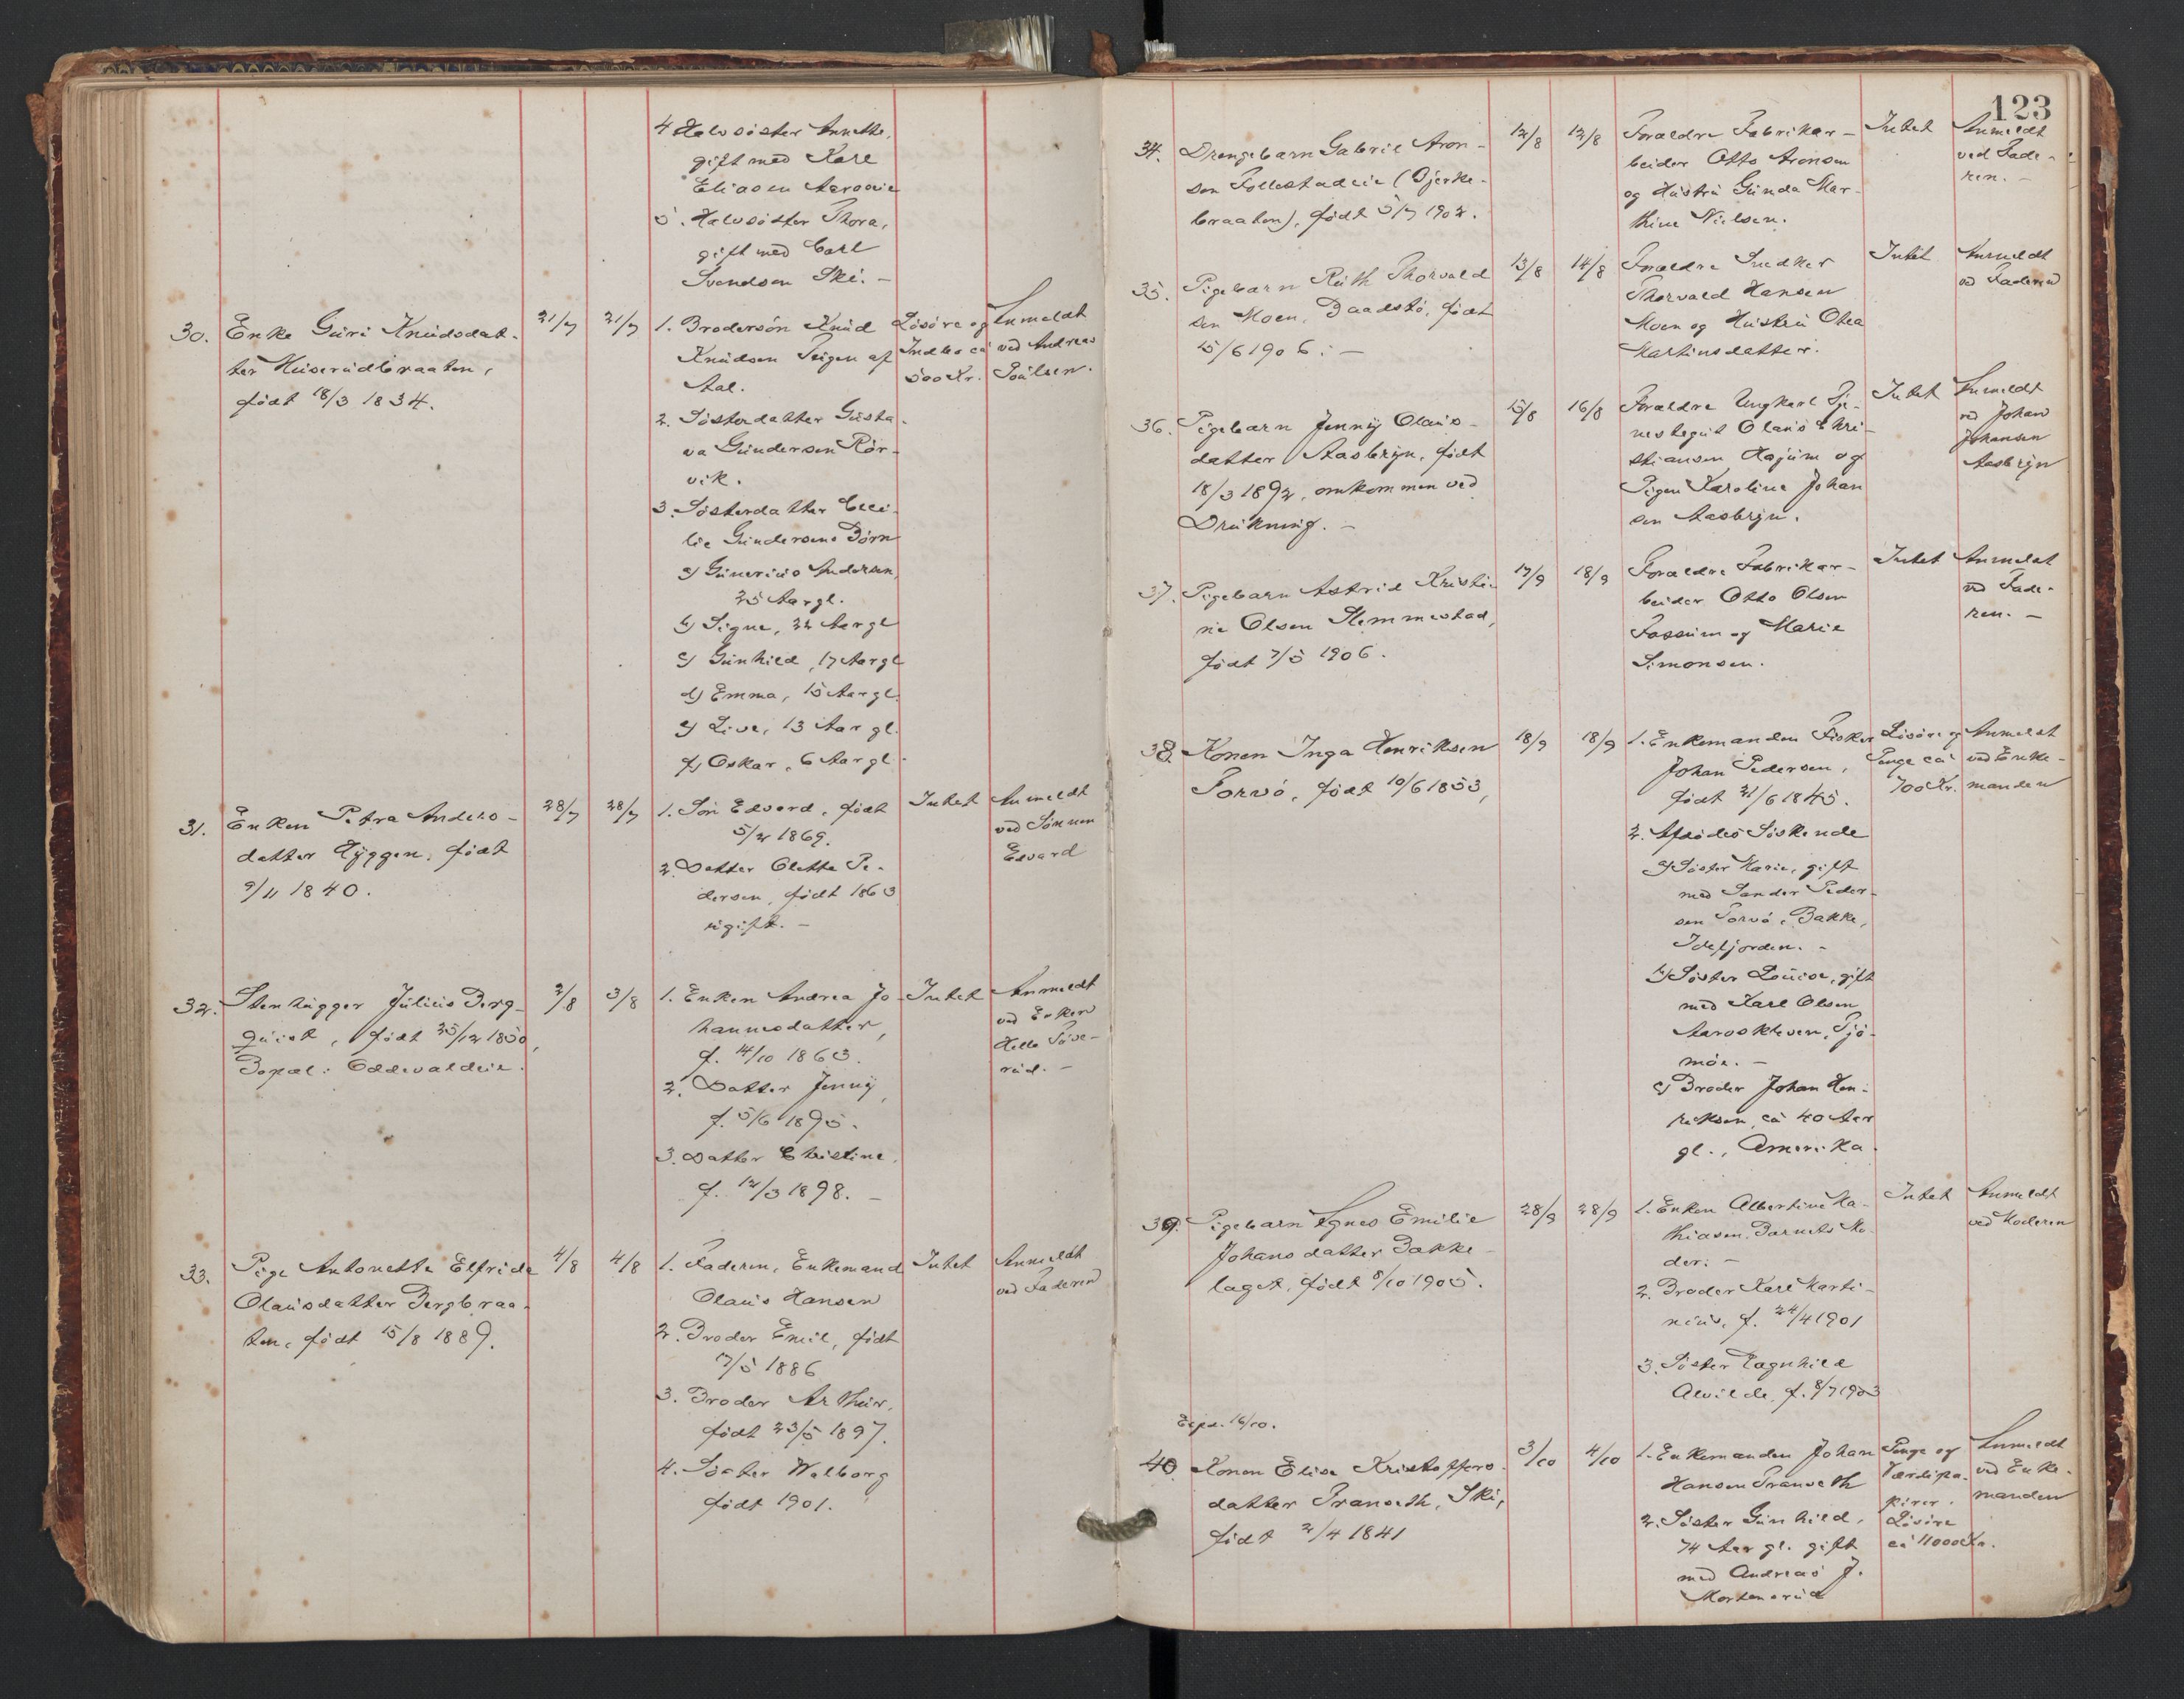 4 Halvsöster Annette,
gift med Karl
Eliasen Aaroseie
5. Halvsöster Thora,
gift med Carl
Svendsen Ski. –
30. Enke Guri Knudsdat-
ter Huserudbraaten,
født 18/3 1834.
21/7 21/7
1. Brodersön Knud
Knudsen Teigen af
Aal.
2. Sösterdatter Gusta-
va Gundersen Rör-
vik.
3. Sösterdatter Ceci-
lie Gundersens Börn
a) Gunerius Andersen,
25 Aar gl.
b) Signe, 22 Aar gl
c) Gunhild, 17 Aar gl
d) Emma, 15 Aar gl.
e) Live, 13 Aar gl.
f) Oskar, 6 Aar gl.
Lösöre og
Indbo ca
500 Kr.
Anmeldt
ved Andreas
Poulsen.
31. Enken Petra Anders-
datter Hyggen, født
9/11 1840.
28/7 28/7
1. Sön Edvard, født
5/2 1869.
2. Datter Olette Pe-
dersen, født 1863
ugift. –
Intet
Anmeldt
ved Sönnen
Edvard
32. Stenhugger Julius Berg-
quist, født 25/12 1850,
Bopæl: Oddevaldeie.
2/8 3/8
1. Enken Andrea Jo-
hannesdatter,
f. 14/10 1863.
2. Datter Jenny,
f. 5/6 1895.
3. Datter Christine,
f. 12/3 1898. –
Intet
Anmeldt
ved Enken
33. Pige Antonette Elfride
Olausdatter Bergbraa-
ten, født 15/8 1889.
4/8 4/8
1. Faderen, Enkemand
Olaus Hansen
2. Broder Emil, født
7/5 1886
3. Broder Arthur,
født 23/5 1897.
4. Söster Walborg
født 1901.
Intet
Anmeldt
ved Faderen
123
34. Drengebarn Gabriel Aron-
sen Follestadeie (Bjerke-
braaten), født 5/7 1902.
12/8 12/8
Foræ­ldre Fabrikar-
beider Otto Aronsen
og Hustru Gunda Mar-
thine Nielsen.
Intet
Anmeldt
ved Fade-
ren. –
35. Pigebarn Ruth Thorvald
sen Moen, Baadstö, født
15/6 1906. –
13/8 14/8
Forældre Snedker
Thorvald Hansen
Moen og Hustru Otea
Martinsdatter.
Intet
Anmeldt
ved Faderen
36. Pigebarn Jenny Olaus-
datter Aasbryn, født
18/3 1892, omkommen ved
Drukning. –
15/8 16/8
Forældre Ungkarl Tje-
nestegut Olaus Chri-
stiansen Hajum og
Pigen Karoline Johan
sen Aasbryn.
Intet
Anmeldt
ved Johan
Johansen
Aasbryn
37. Pigebarn Astrid Kristi-
ne Olsen Slemmestad,
født 7/5 1906.
17/9 18/9
Forældre Fabrikar-
beider Otto Olsen
Fossum og Marie
Simonsen.
Intet
Anmeldt
ved Fade-
ren. –
38. Konen Inga Henriksen
Torvö, født 10/6 1853,
18/9 18/9
1. Enkemanden Fisker
Johan Pedersen,
født 21/6 1845.
2. Afdödes Söskende
a) Söster Karin, gift
med Sander Peder-
sen Torvö, Bakke,
Idefjorden. –
b) Söster Louise, gift
med Karl Olsen
Aarvoskleven, Tjö-
möe. –
c) Broder Johan Hen-
riksen, ca 40 Aar
gl., Amerika.
Lösöre og
Penge ca
700 Kr.
Anmeldt
ved Enke-
manden
39. Pigebarn Agnes Emilie
Johansdatter Bakke-
laget, født 8/10 1905.
28/9 28/9
1. Enken Albertine Ma-
thiasen, Barnets Mo-
der. –
2. Broder Karl Marti-
nius, f. 24/4 1901
3. Söster Ragnhild
Alvilde, f. 8/7 1903
Intet
Anmeldt
ved Moderen
Expd. 16/10.
40. Konen Elise Kristoffers-
datter Franseth, Ski,
født 2/4 1841
3/10 4/10
1. Enkemanden Johan
Hansen Franseth
2. Söster Gunhild,
74 Aar gl. gift
med Andreas J.
Mortensrud
Penge og
Værdipa-
pirer.
Lösöre
ca 11000 Kr.
Anmeldt
ved Enke-
manden